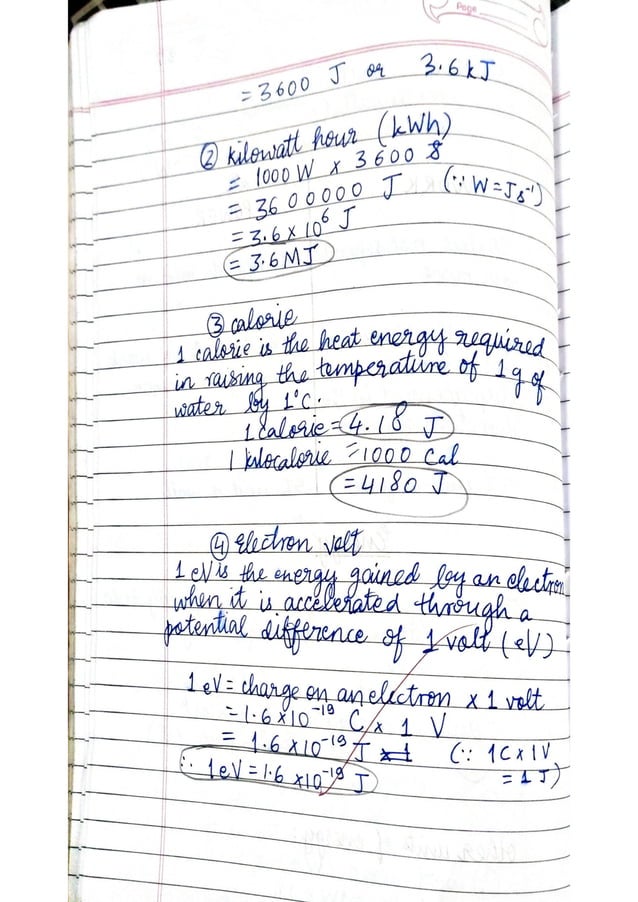 Page
= 3600 J or 3.6 kJ
② kilowatt hour (kWh)
= 1000 W x 3600 s
= 3600000 J (∵ W = Js⁻¹)
= 3.6 x 10⁶ J
= 3.6 MJ
③ calorie
1 calorie is the heat energy required
in raising the temperature of 1 g of
water by 1°C.
1 calorie = 4.18 J
1 kilocalorie = 1000 Cal
= 4180 J
④ Electron volt
1 eV is the energy gained by an electron
when it is accelerated through a
potential difference of 1 volt (eV)
1 eV = charge on an electron x 1 volt
= 1.6 x 10⁻¹⁹ C x 1 V
= 1.6 x 10⁻¹⁹ J (∵ 1C x 1V
∴ 1eV = 1.6 x 10⁻¹⁹ J = 1 J)